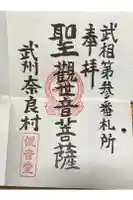 武相第参番札所
奉拝
聖観世音菩薩
武州奈良村
観音堂